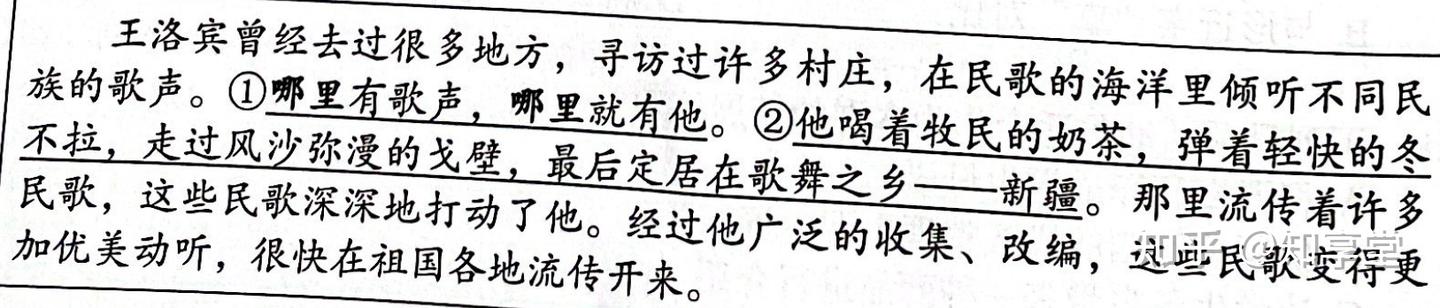 王洛宾曾经去过很多地方，寻访过许多村庄，在民歌的海洋里倾听不同民
族的歌声。①哪里有歌声，哪里就有他。②他喝着牧民的奶茶，弹着轻快的冬
不拉，走过风沙弥漫的戈壁，最后定居在歌舞之乡——新疆。那里流传着许多
民歌，这些民歌深深地打动了他。经过他广泛的收集、改编，这些民歌变得更
加优美动听，很快在祖国各地流传开来。
知乎 @知享堂